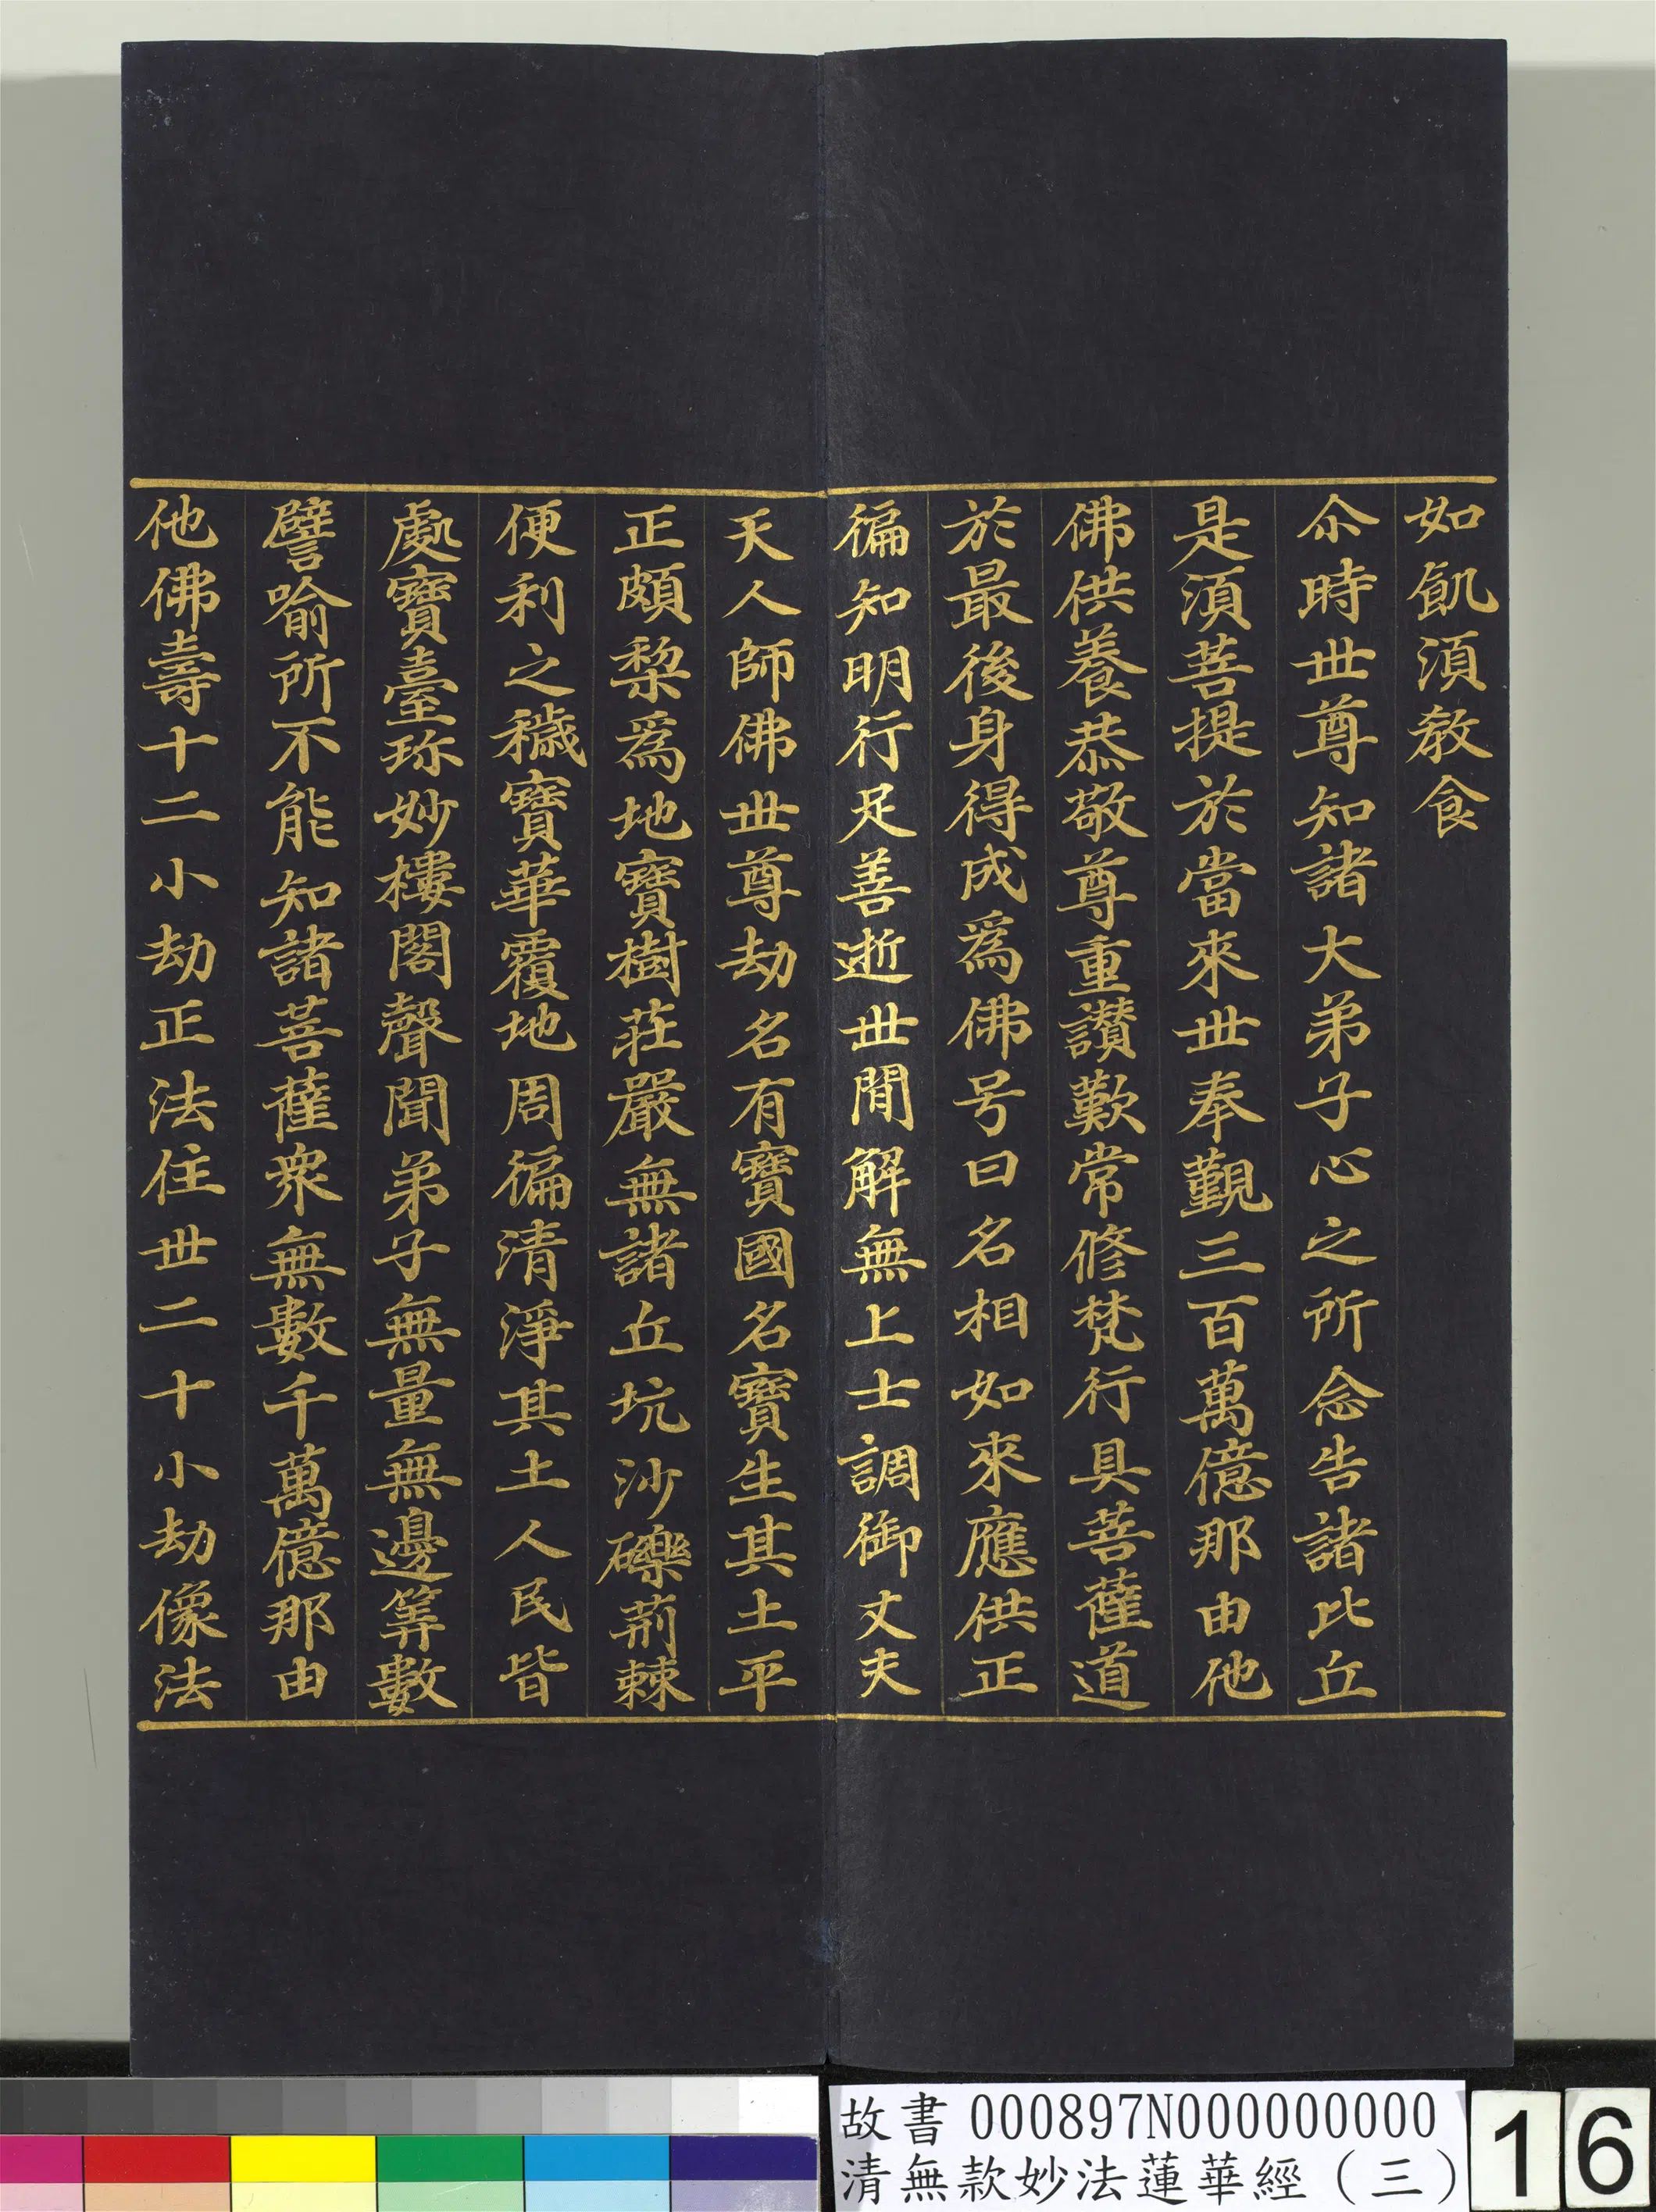 如飢湏教食
尒時世尊知諸大弟子心之所念告諸比丘
是湏菩提於當來世奉覲三百萬億那由他
佛供養恭敬尊重讃歎常修梵行具菩薩道
於最後身得成爲佛号曰名相如來應供正
徧知明行足善逝世間解無上士調御丈夫
天人師佛世尊劫名有寶國名寶生其土平
正頗棃爲地寶樹莊嚴無諸丘坑沙礫荊棘
便利之穢寶華覆地周徧清淨其土人民皆
處寶臺珎妙樓閣聲聞弟子無量無邊筭數
譬喻所不能知諸菩薩衆無數千萬億那由
他佛壽十二小劫正法住世二十小劫像法
故書 000897N000000000
清無款妙法蓮華經（三）
16